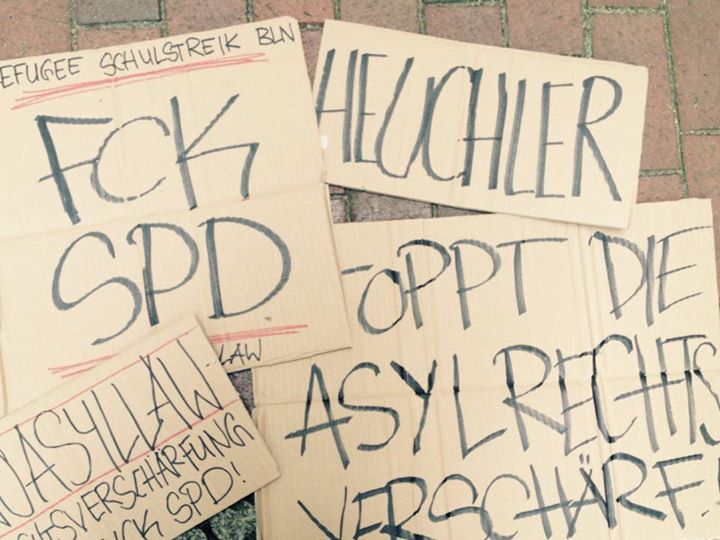 EFUGEE SCHULSTREIK BLN
FCK
SPD
LAW
HEUCHLER
OPPT DIE
ASYLRECHTS
VERSCHÄRF
ASYLLAW
SVERSCHÄRFUNG
CK SPD!